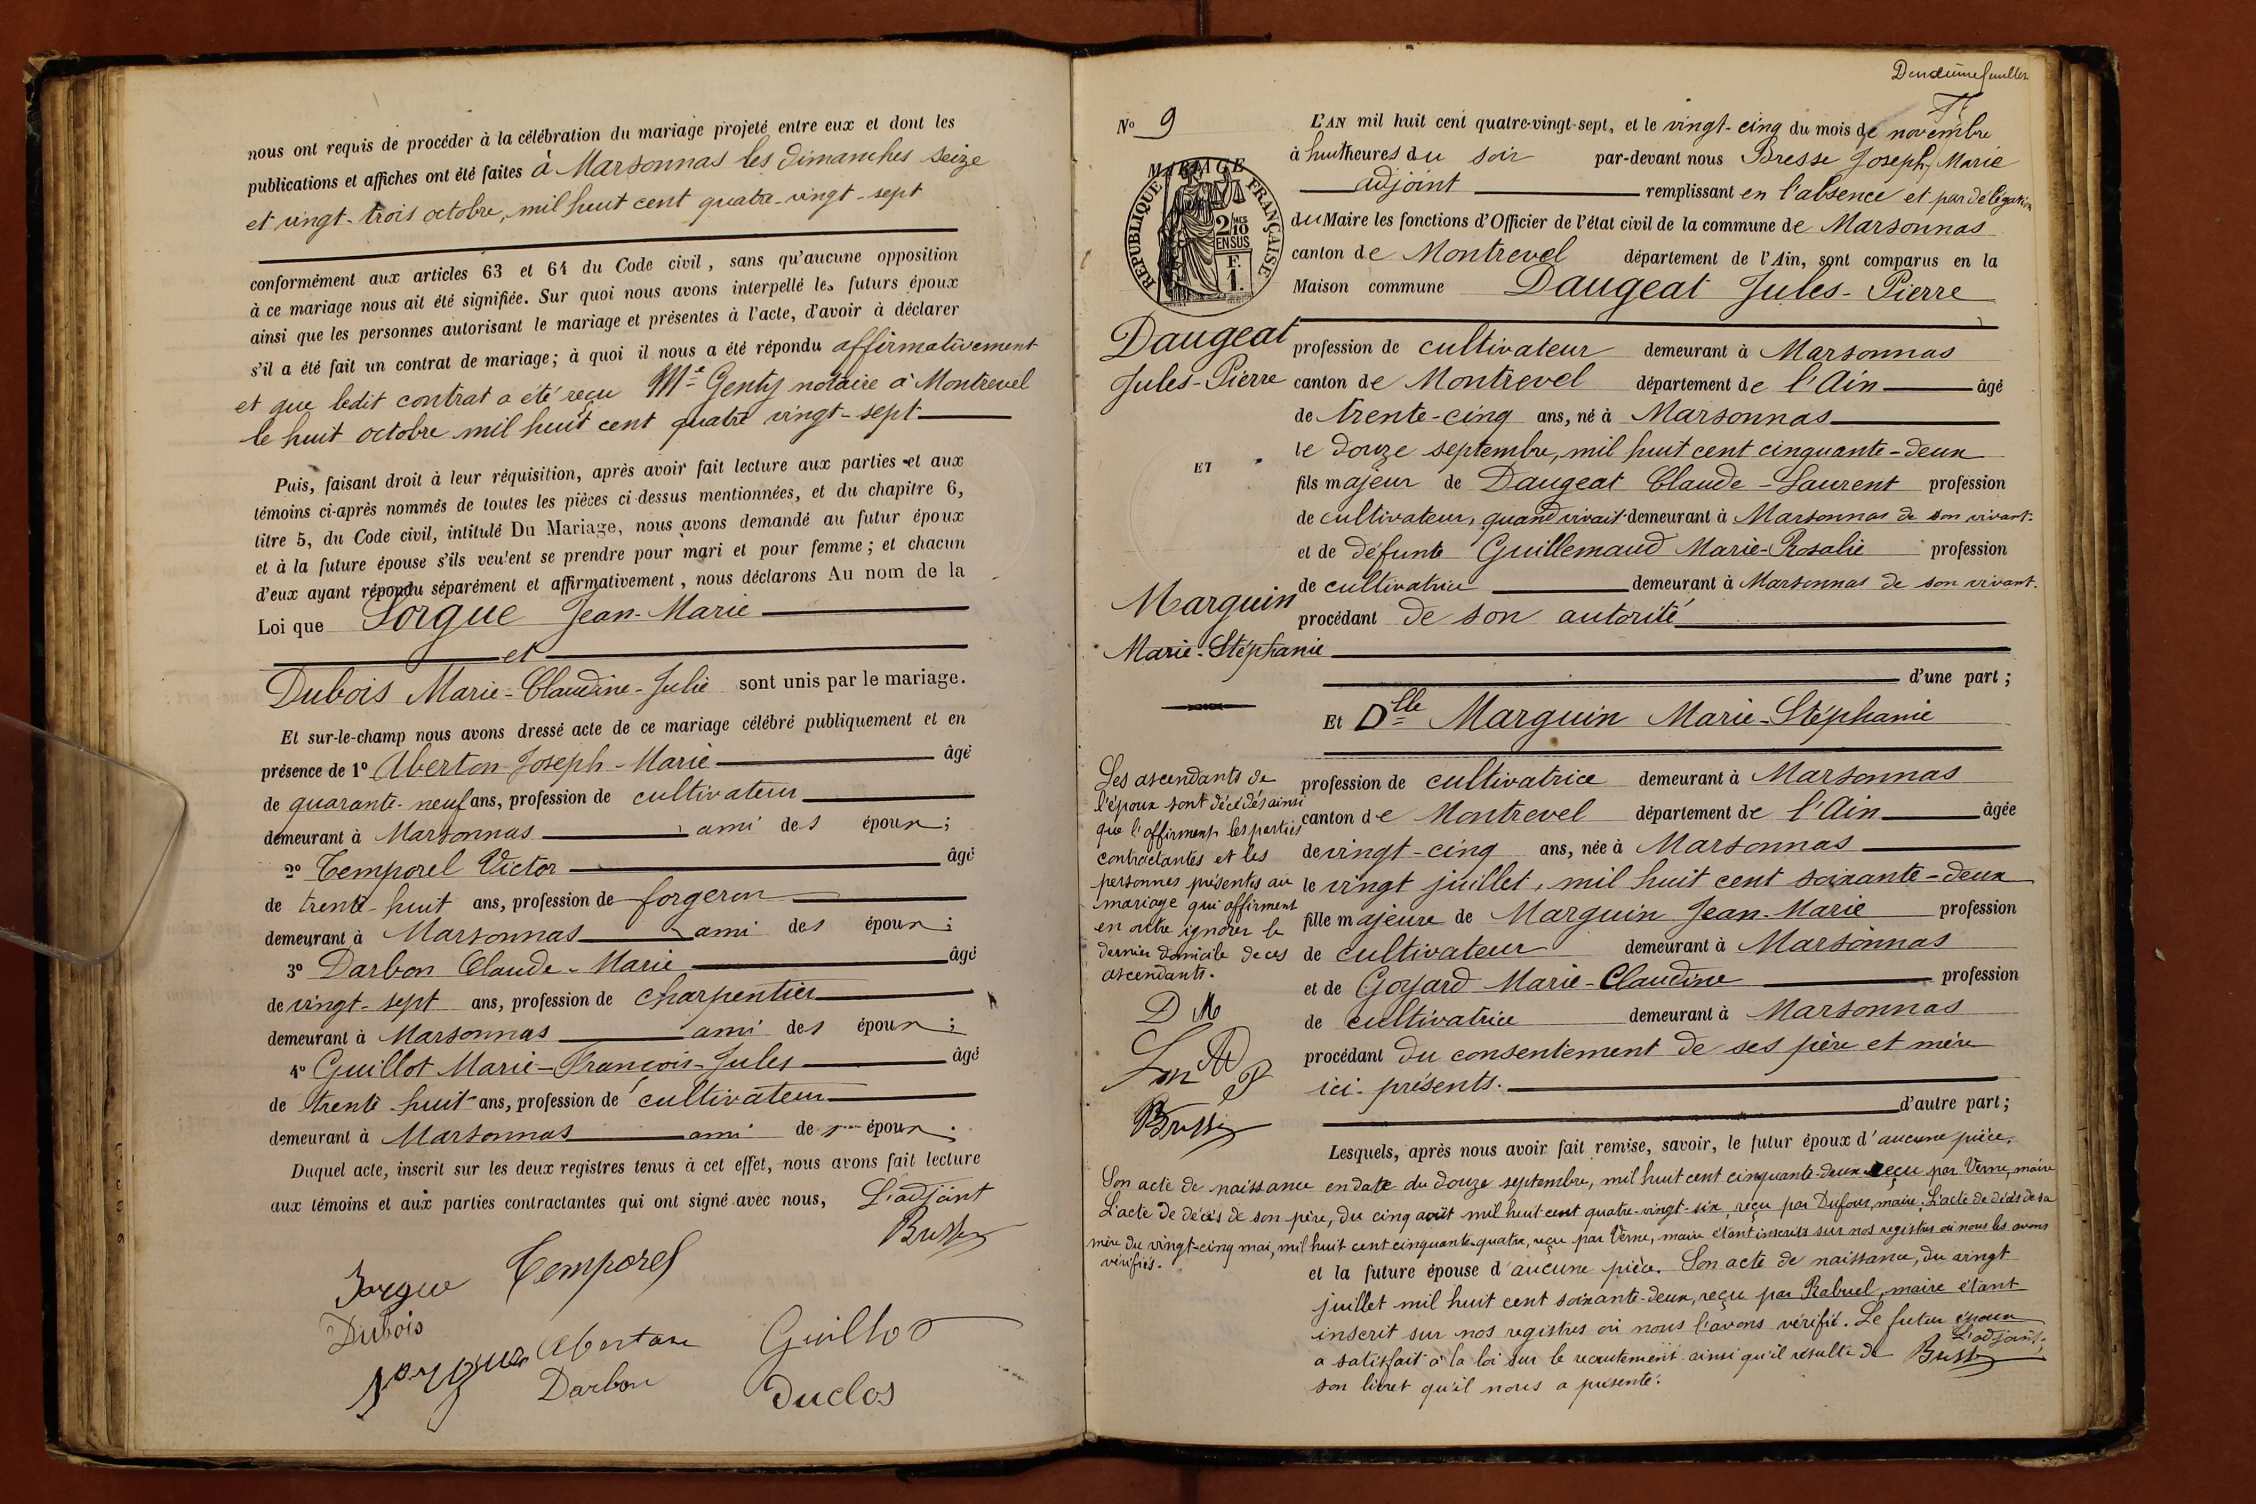 nous ont requis de procéder à la célébration du mariage projeté entre eux et dont les
publications et affiches ont été faites à Marsonnas les dimanches seize
et vingt-trois octobre, mil huit cent quatre-vingt-sept
conformément aux articles 63 et 64 du Code civil, sans qu'aucune opposition
à ce mariage nous ait été signifiée. Sur quoi nous avons interpellé les futurs époux
ainsi que les personnes autorisant le mariage et présentes à l'acte, d'avoir à déclarer
s'il a été fait un contrat de mariage; à quoi il nous a été répondu affirmativement
et que ledit contrat a été reçu Me Genty notaire à Montrevel
le huit octobre mil huit cent quatre vingt-sept
Puis, faisant droit à leur réquisition, après avoir fait lecture aux parties et aux
témoins ci-après nommés de toutes les pièces ci-dessus mentionnées, et du chapitre 6,
titre 5, du Code civil, intitulé Du Mariage, nous avons demandé au futur époux
et à la future épouse s'ils veulent se prendre pour mari et pour femme; et chacun
d'eux ayant répondu séparément et affirmativement, nous déclarons Au nom de la
Loi que Sorgue Jean-Marie
et
Dubois Marie-Claudine-Julie sont unis par le mariage.
Et sur-le-champ nous avons dressé acte de ce mariage célébré publiquement et en
présence de 1° Aberton Joseph-Marie âgé
de quarante-neuf ans, profession de cultivateur
demeurant à Marsonnas ami des époux;
2° Temporel Victor âgé
de trente-huit ans, profession de forgeron
demeurant à Marsonnas ami des époux;
3° Darbon Claude-Marie âgé
de vingt-sept ans, profession de charpentier
demeurant à Marsonnas ami des époux;
4° Guillot Marie-François-Jules âgé
de trente-huit ans, profession de cultivateur
demeurant à Marsonnas ami des époux.
Duquel acte, inscrit sur les deux registres tenus à cet effet, nous avons fait lecture
aux témoins et aux parties contractantes qui ont signé avec nous, L'adjoint
Sorgue Temporel
Dubois
Aberton Guillot
Darbon Duclos
N° 9
MARIAGE
RÉPUBLIQUE FRANÇAISE
2/10
EN SUS
F.
1.
L'AN mil huit cent quatre-vingt-sept, et le vingt-cinq du mois de novembre
à huit heures du soir par-devant nous Bresse Joseph-Marie
adjoint remplissant en l'absence et par délégation
du Maire les fonctions d'Officier de l'état civil de la commune de Marsonnas
canton de Montrevel département de l'Ain, sont comparus en la
Maison commune Daugeat Jules-Pierre
Daugeat
Jules-Pierre
profession de cultivateur demeurant à Marsonnas
canton de Montrevel département de l'Ain âgé
de trente-cinq ans, né à Marsonnas
le douze septembre, mil huit cent cinquante-deux
ET
fils majeur de Daugeat Claude-Laurent profession
de cultivateur, quand vivait demeurant à Marsonnas de son vivant.
et de défunte Guillemaud Marie-Rosalie profession
de cultivatrice demeurant à Marsonnas de son vivant.
Marguin
Marie-Stéphanie
procédant de son autorité
d'une part;
Et Dlle Marguin Marie-Stéphanie
profession de cultivatrice demeurant à Marsonnas
canton de Montrevel département de l'Ain âgée
de vingt-cinq ans, née à Marsonnas
le vingt juillet, mil huit cent soixante-deux
fille majeure de Marguin Jean-Marie profession
de cultivateur demeurant à Marsonnas
et de Goyard Marie-Claudine profession
de cultivatrice demeurant à Marsonnas
procédant du consentement de ses père et mère
ici-présents.
d'autre part;
Les ascendants de
l'époux sont décédés ainsi
que l'affirment les parties
contractantes et les
personnes présentes au
mariage qui affirment
en outre ignorer le
dernier domicile de ces
ascendants.
D M
Lesquels, après nous avoir fait remise, savoir, le futur époux d'aucune pièce.
Son acte de naissance en date du douze septembre, mil huit cent cinquante-deux reçu par Verne, maire
L'acte de décès de son père, du cinq août mil huit cent quatre-vingt-six, reçu par Dufour, maire. L'acte de décès de sa
mère du vingt-cinq mai, mil huit cent cinquante-quatre, reçu par Verne, maire étant inscrits sur nos registres où nous les avons
vérifiés.
et la future épouse d'aucune pièce. Son acte de naissance, du vingt
juillet mil huit cent soixante-deux, reçu par Rabuel, maire étant
inscrit sur nos registres où nous l'avons vérifié. Le futur époux
a satisfait à la loi sur le recrutement ainsi qu'il résulte de
son livret qu'il nous a présenté.
L'adjoint,